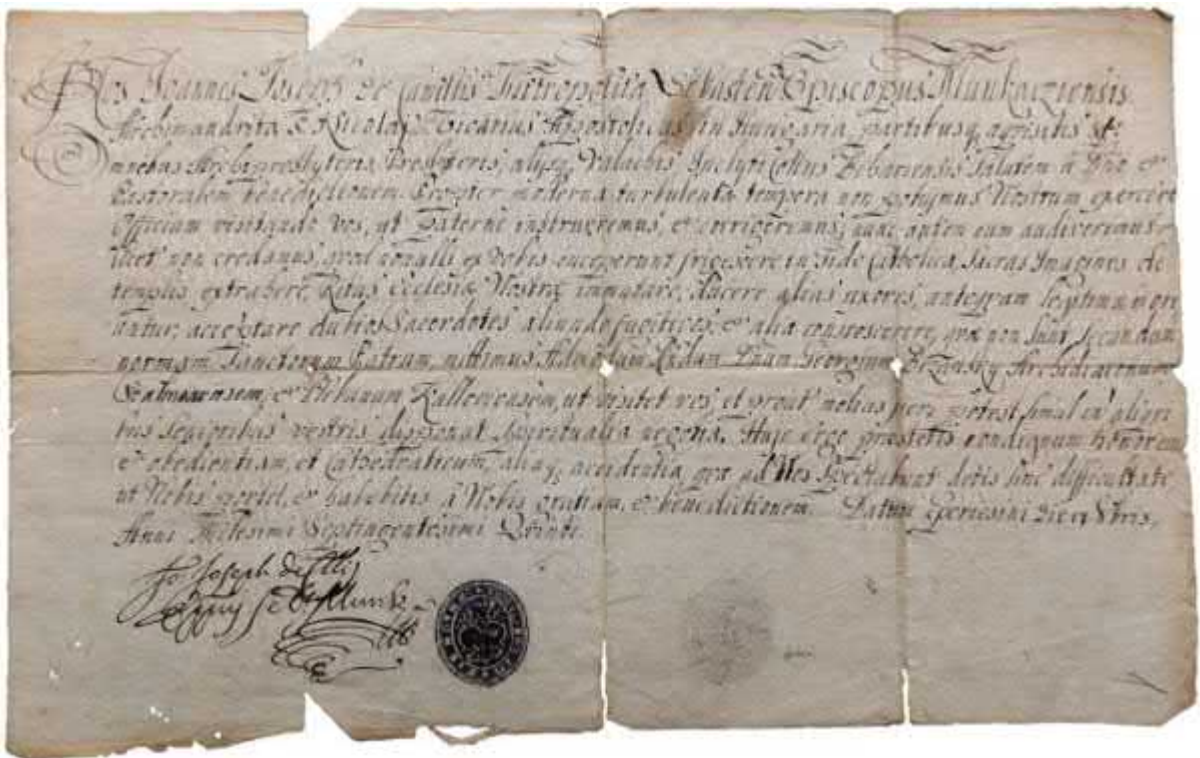 Nos Joannes Joseph de Camillis Metropolita Sebasten Episcopus Munkacziensis
Archimandrita S. Nicolai Vicarius Apostolicus in Hungaria, partibusq annexis
omnibus Archipresbyteris, Presbyteris, alysq Valachis Inclyti Cottus Salutem à Dno et
Pastoralem benedictionem. Propter moderna turbulenta tempora non potuimus Nostrum exercere
Officium visitando vos, ut Paterne instrueremus, et corrigeremus, nunc autem cum audiverimus
licet non credamus, quod nonulli ex vobis inceperunt frigescere in fide Catholica, Sacras Imagines de
templis extrahere, Ritus Ecclesiæ Nostræ immutare, ducere alias uxores, antequam legitimæ mori
untur, acceptare dubios Sacerdotes aliunde fugitivos, et alia committere, quæ non sunt secundum
normam Sanctorum Patrum, mittimus Admodum Georgium Archidiaconum
et Plebanum Kalloviensem, ut visitet vos, et prout melius poterit simul cum aliqui
bus senioribus vestris disponat Spiritualia negotia. Huic ergo præstetis condignum honorem
et obedientiam, et Cathedraticum, aliaq accidentia quæ ad Nos spectabunt detis sine difficultate
ut Nobis portet, et habebitis à Nobis gratiam, et benedictionem. Datum Eperiessini die
Anni Millesimi Septingentesimi Quinti.
Jo Joseph de